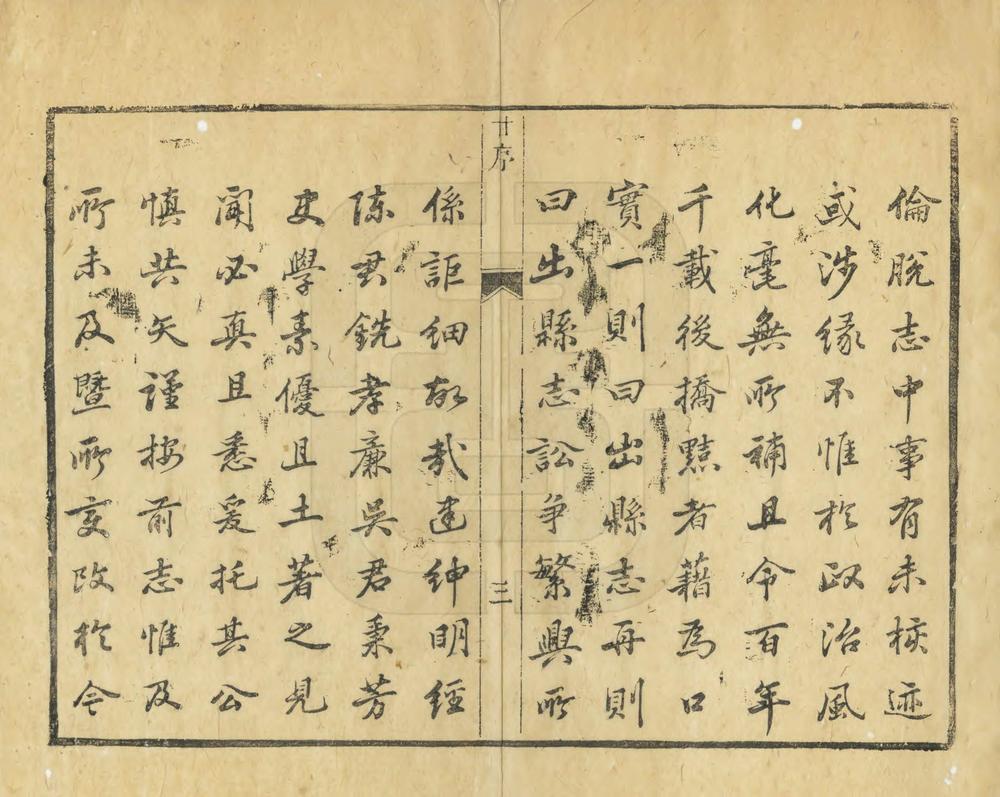 倫脫志中事有未核迹
或涉缘不惟於政治風
化毫無所補且令百年
千載後撟黠者藉為口
實一則曰出縣志再則
曰出縣志訟爭繁興所
廿序
三
係詎細故哉逮紳明經
陳君銑孝廉吳君秉芳
史學素優且土著之見
聞必真且悉爰托其公
慎共矢謹按前志惟及
所未及暨所變改於今